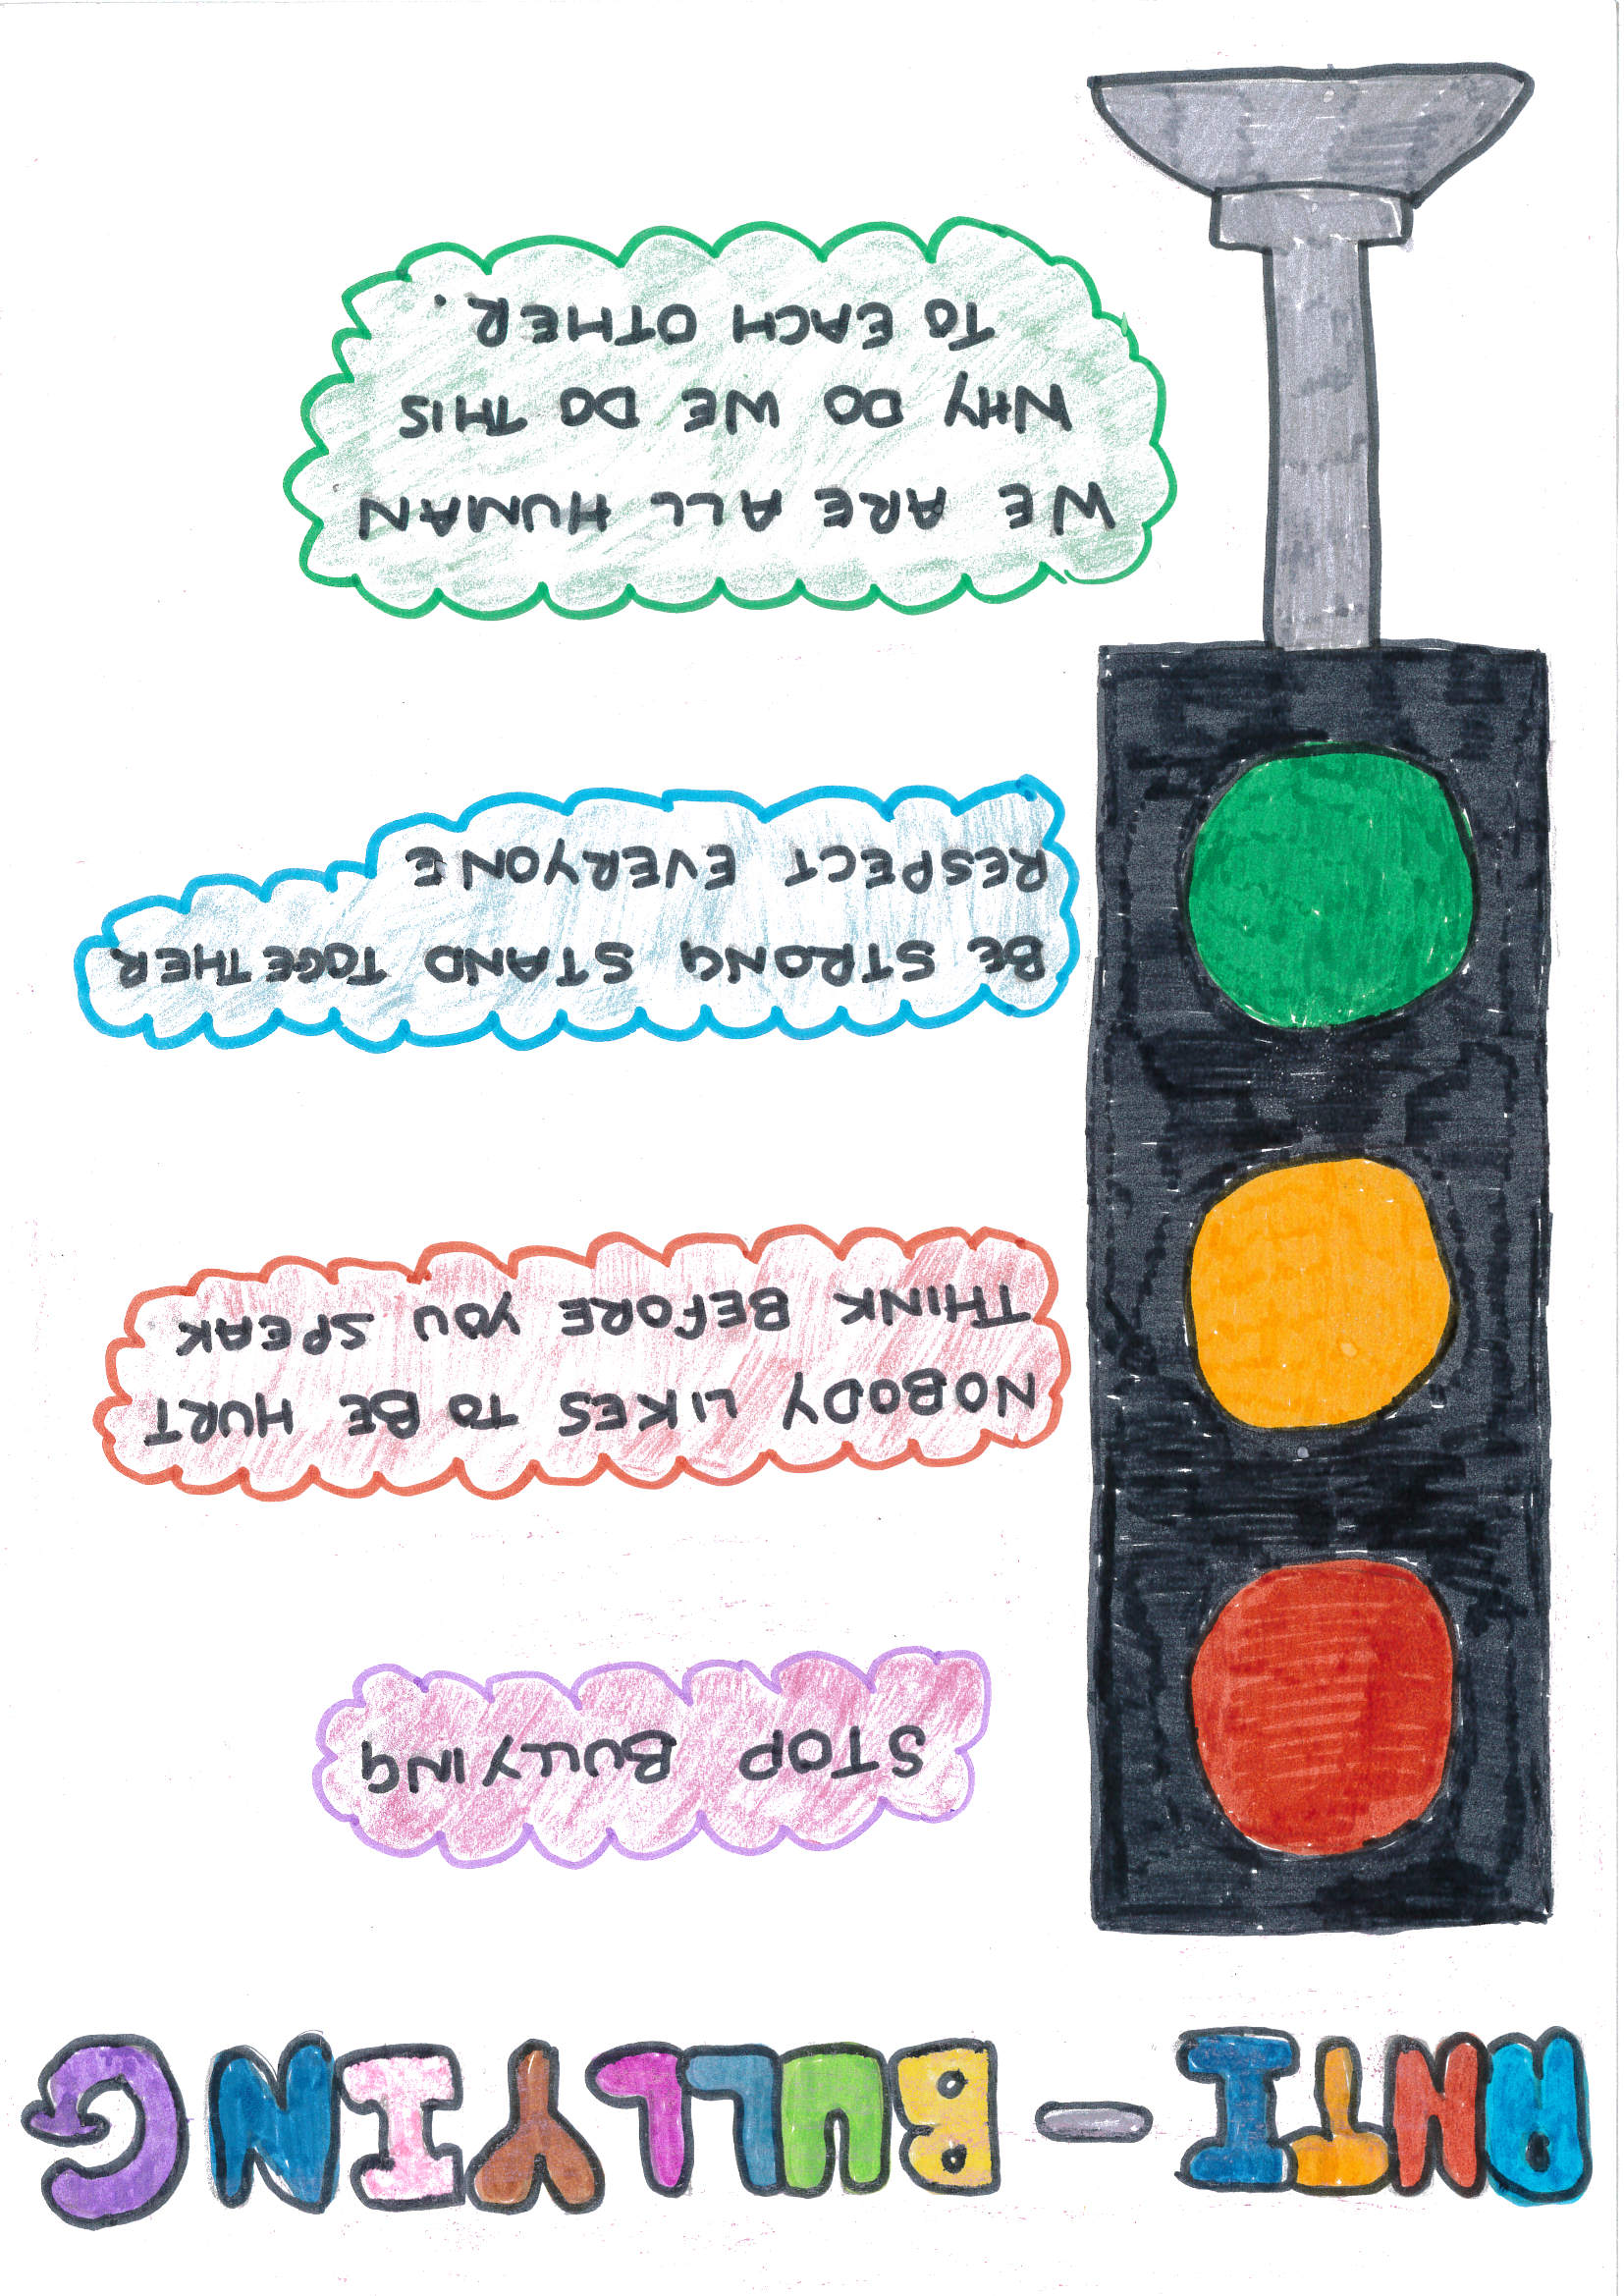 ANTI-BULLYING
STOP BULLYING
NOBODY LIKES TO BE HURT
THINK BEFORE YOU SPEAK
BE STRONG STAND TOGETHER
RESPECT EVERYONE
WE ARE ALL HUMAN
WHY DO WE DO THIS
TO EACH OTHER.